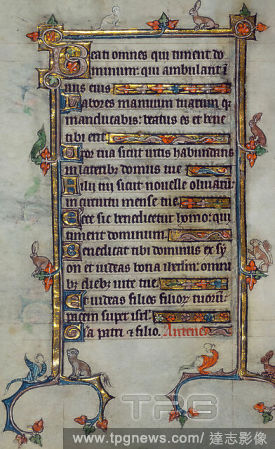 Beati omnes qui timent do
minum: qui ambulant i
uiis eius
Labores manuum tuarum q̄
manducabis: beatus es et bene
tibi erit
Uxor tua sicut uitis habundans
in lateribꝫ domus tue
Filii tui sicut nouelle oliuarū
in circuitu mense tue
Ecce sic benedicetur homo: qui
timet dominum
Benedicat tibi dominus ex sy
on et uideas bona iherlm: omnibꝫ
diebꝫ uite tue
Et uideas filios filiorꝫ tuorū
pacem super isrl
Gla patri et filio. Antene
TPG
www.tpgnews.com/達志影像